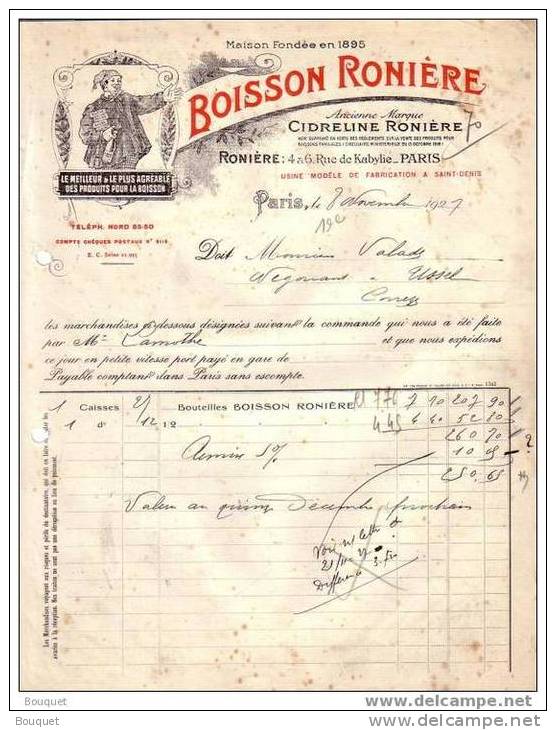 Maison Fondée en 1895
BOISSON RONIÈRE
Ancienne Marque
CIDRELINE RONIÈRE
RONIÈRE: 4 & 6, Rue de Kabylie _ PARIS
USINE MODÈLE DE FABRICATION A SAINT-DENIS
LE MEILLEUR & LE PLUS AGRÉABLE
DES PRODUITS POUR LA BOISSON
Paris, le 8 Novembre 1927
TÉLÉPH. NORD 85-50
COMPTE CHÈQUES POSTAUX N°
R. C. Seine
Doit Monsieur Valade
Négociant à Ussel
Corrèze
les marchandises ci-dessous désignées suivant la commande qui nous a été faite
par Mr Lamothe et que nous expédions
ce jour en petite vitesse port payé en gare de
Payable comptant dans Paris sans escompte.
1 Caisses 25/ Bouteilles BOISSON RONIÈRE 7 90 207 90
1 do 12/12 4 40 52 80
260 70
Remise 5% 10 05
250 65
Valeur au quinze Décembre prochain
Différence
Les Marchandises voyagent aux risques et périls du destinataire, qui doit en faire
Bouquet
Bouquet
Bouquet
www.delcampe.net
www.delcampe.net